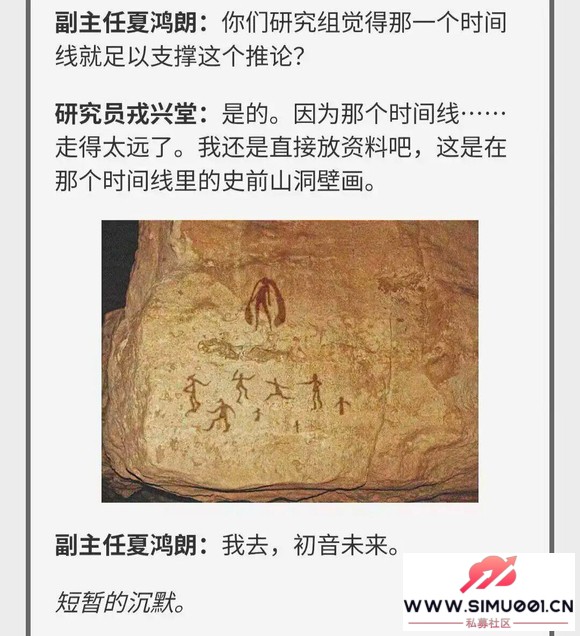 副主任夏鸿朗：你们研究组觉得那一个时间
线就足以支撑这个推论？
研究员戎兴堂：是的。因为那个时间线……
走得太远了。我还是直接放资料吧，这是在
那个时间线里的史前山洞壁画。
副主任夏鸿朗：我去，初音未来。
短暂的沉默。
WWW.SIMU001.CN
私募社区